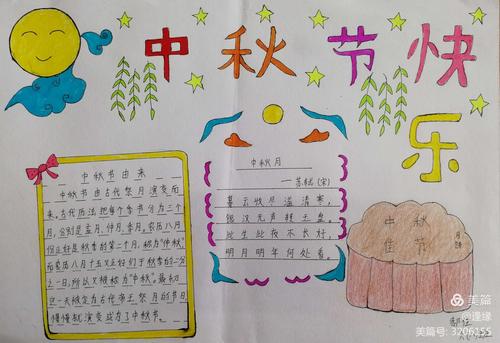 中秋节快乐
中秋节由来
中秋节由古代祭月演变而
来。古代历法把每个季节分为三个
月,分别是孟月、仲月、季月,农历八月
份正好是秋季的第二个月,称为"中秋",
而农历八月十五又正好们于秋季的二分
之一日,所以又被称为"中秋"。最初
这一天被定为古代帝王祭月的节日
慢慢就演变成为了中秋节。
中秋月
——苏轼(宋)
暮云收尽溢清寒,
银汉无声转玉盘。
此生此夜不长好,
明月明年何处看。
中秋
佳节
月饼
美篇
@逢缘
美篇号: 3206155